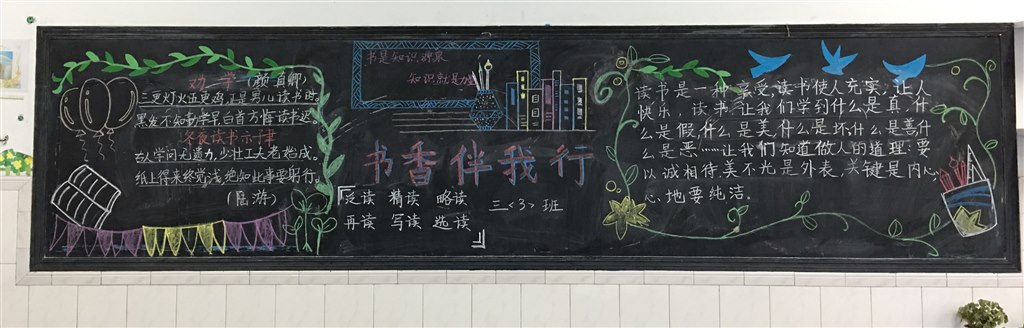 劝学(颜真卿)
三更灯火五更鸡,正是男儿读书时。
黑发不知勤学早,白首方悔读书迟。
冬夜读书示子聿
古人学问无遗力,少壮工夫老始成。
纸上得来终觉浅,绝知此事要躬行。
(陆游)
书是知识源泉
知识就是力量
书香伴我行
泛读 精读 略读
三<3>班
再读 写读 选读
读书是一种享受,读书使人充实,让人
快乐,读书,让我们学到什么是真,什
么是假,什么是美,什么是坏,什么是善,什
么是恶……让我们知道做人的道理:要
以诚相待,美不光是外表,关键是内心,
心地要纯洁.